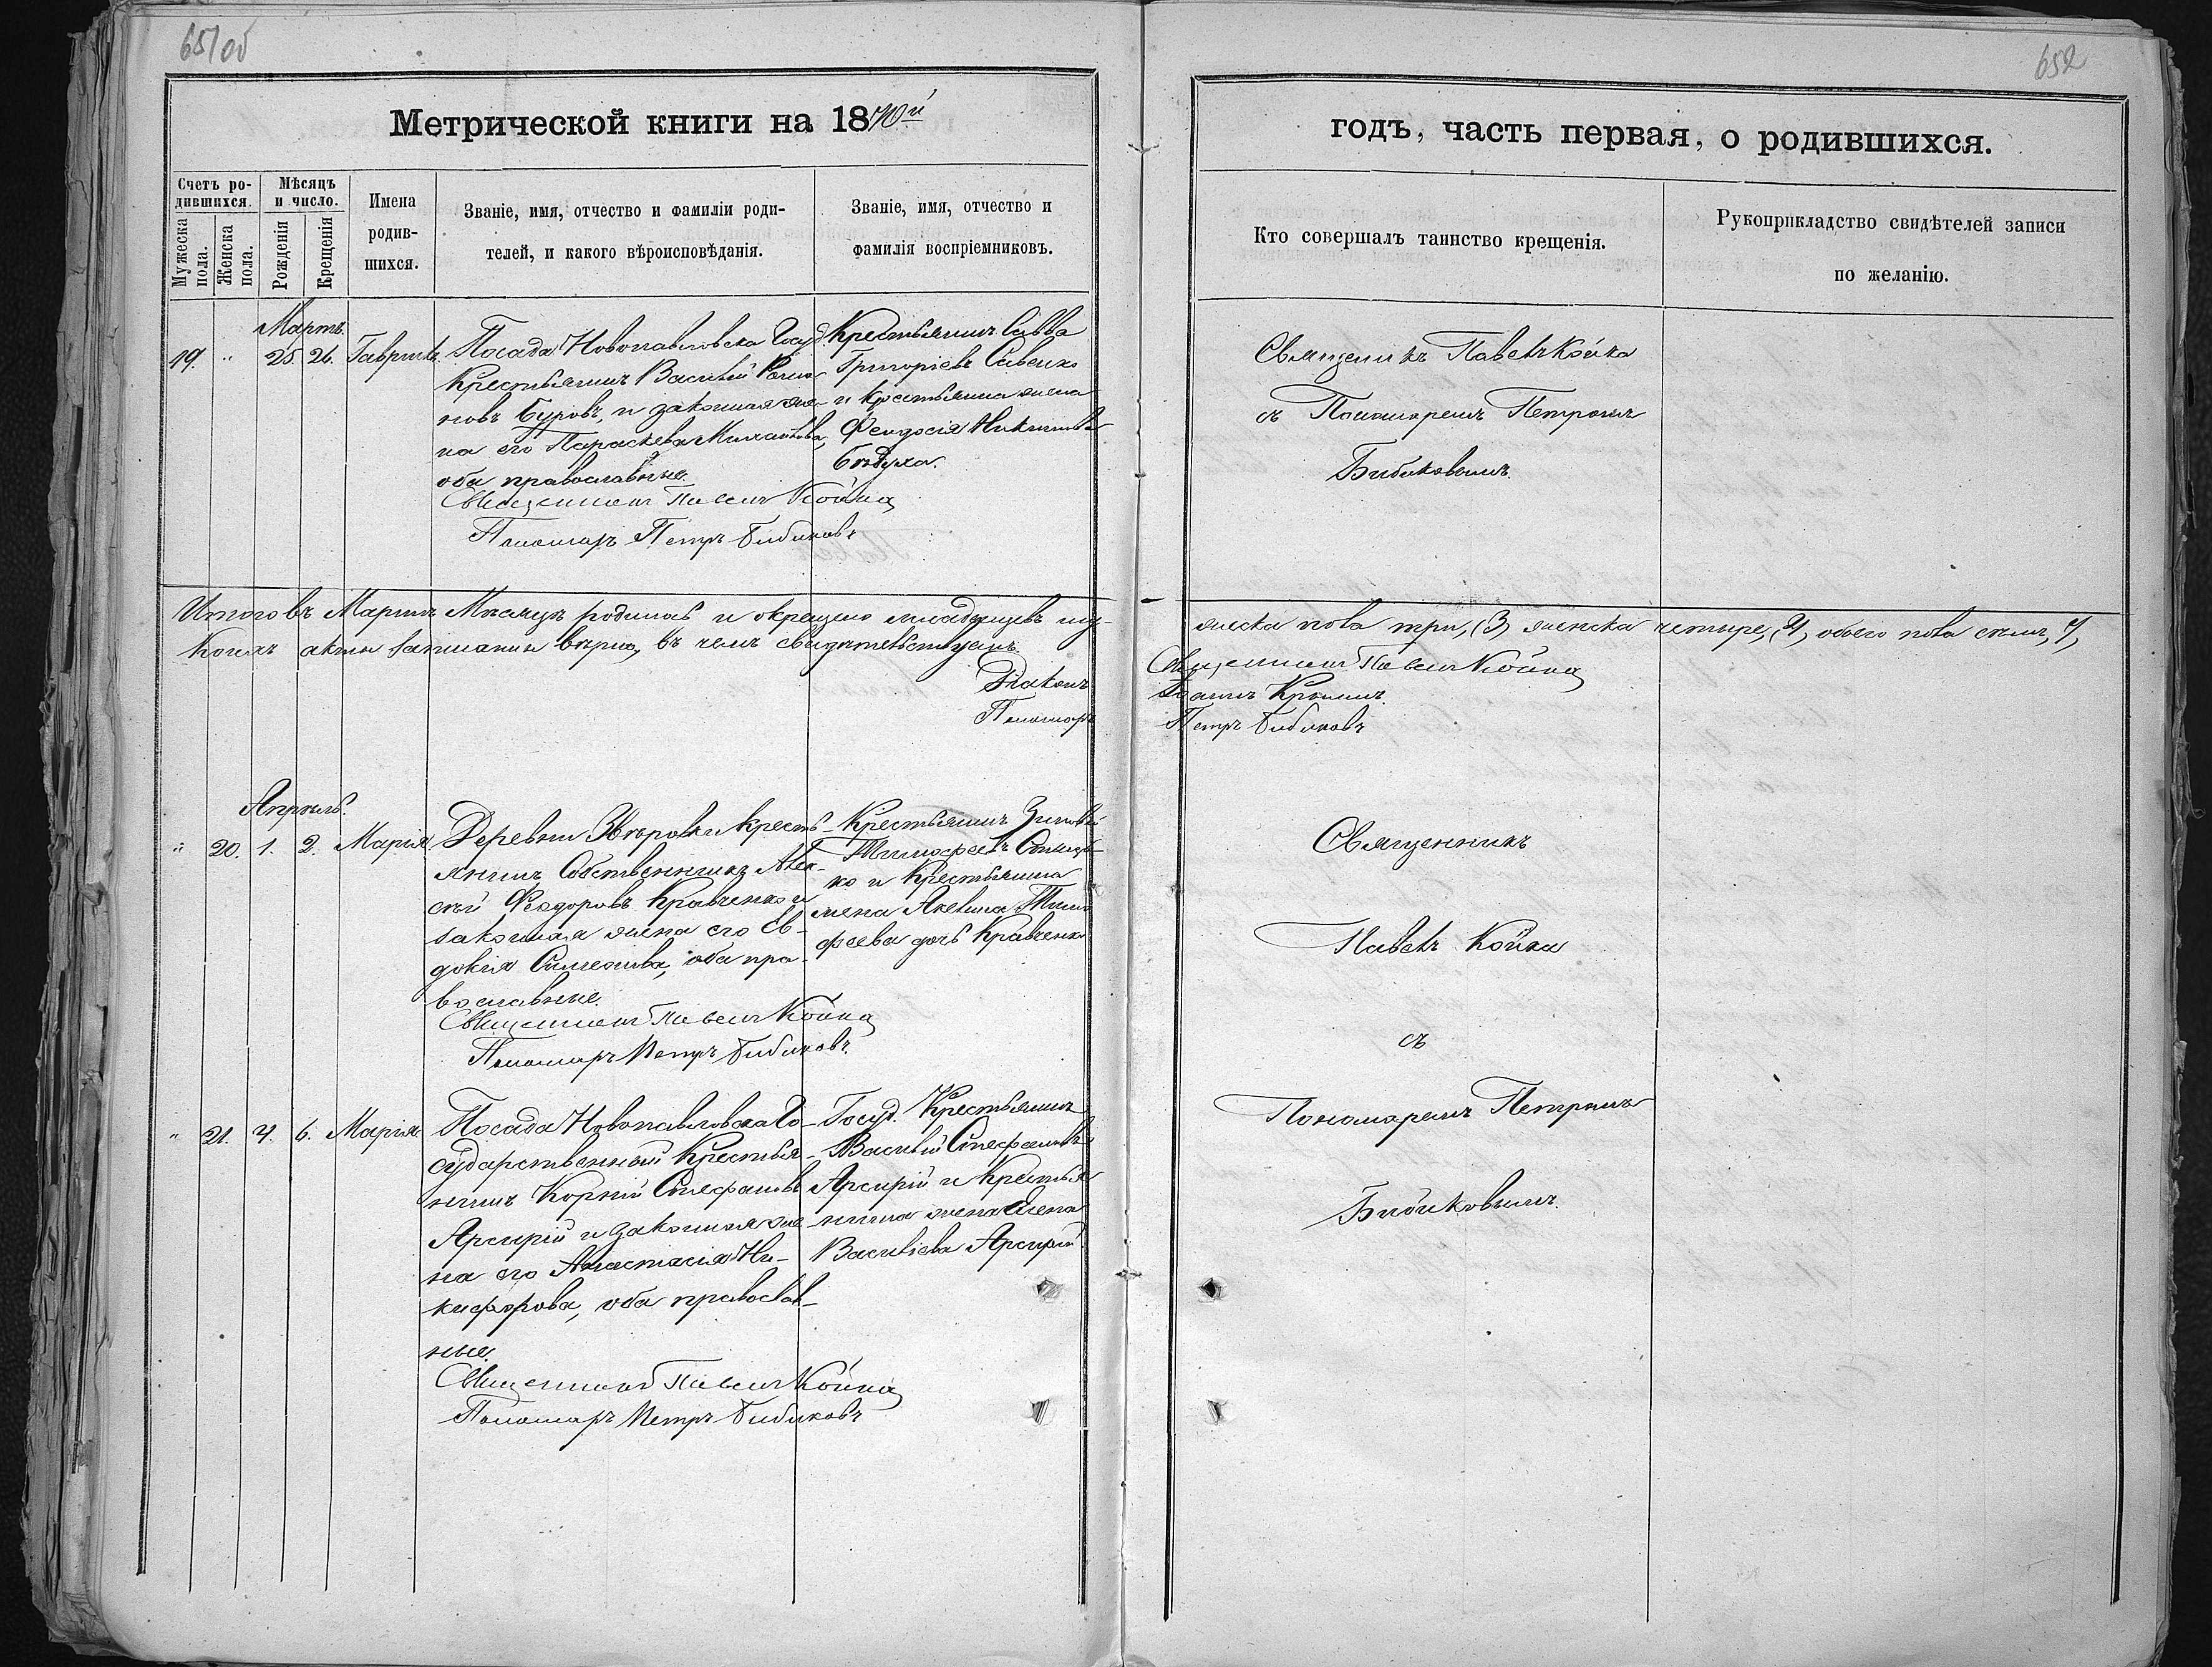 651об
652
Метрической книги на 1870й
годъ, часть первая, о родившихся.
Счетъ ро-
дившихся.
Мужеска пола.
Женска пола.
Мѣсяцъ
и число.
Рожденія
Крещенія
Имена
родив-
шихся.
Званіе, имя, отчество и фамиліи роди-
телей, и какого вѣроисповѣданія.
Званіе, имя, отчество и
фамилія воспріемниковъ.
Кто совершалъ таинство крещенія.
Рукоприкладство свидѣтелей записи
по желанію.
Мартъ.
19. " 25. 26. Гавріилъ.
Посада Новопавловска Госуд.
Крестьянинъ Василій
новъ Буровъ, и законная же-
на его Параскева Михайлова,
оба православные.
Священникъ Павелъ Койка
Пономарь Петръ Бибиковъ
Крестьянинъ Савва
Григоріевъ Савенко
и крестьянина жена
Феодосія Никитина
Священникъ Павелъ Койка
съ Пономаремъ Петромъ
Бибиковымъ.
Итого въ Мартѣ Мѣсяцѣ родилось и окрещено младенцевъ му-
жеска пола три, (3) женска четыре, (4) обоего пола семь, 7,
Коихъ акты записаны вѣрно, въ чемъ свидѣтельствуемъ.
Священникъ Павелъ Койка
Діаконъ Іоаннъ
Пономарь Петръ Бибиковъ
Апрѣль.
" 20. 1. 2. Марія.
Деревни Звѣровки кресть-
янинъ Собственникъ Алек-
сѣй Феодоровъ Кравченко и
законная жена его Ев-
докія Симеонова, оба пра-
вославные.
Священникъ Павелъ Койка
Пономарь Петръ Бибиковъ.
Крестьянинъ Зиновій
Тимофеевъ
ко и Крестьянина
жена Акелина Тимо
феева дочь Кравченко
Священникъ
Павелъ Койка
съ
Пономаремъ Петромъ
Бибиковымъ.
" 21. 4. 6. Марія.
Посада Новопавловска Го-
сударственный Крестья-
нинъ Корній Стефановъ
Арсирій и законная же
на его Анастасія Ни-
кифорова, оба православ-
ные.
Священникъ Павелъ Койка
Пономарь Петръ Бибиковъ
Госуд. Крестьянинъ
Василій Стефановъ
Арсирій и Крестья
нина жена Елена
Василіева Арсирій